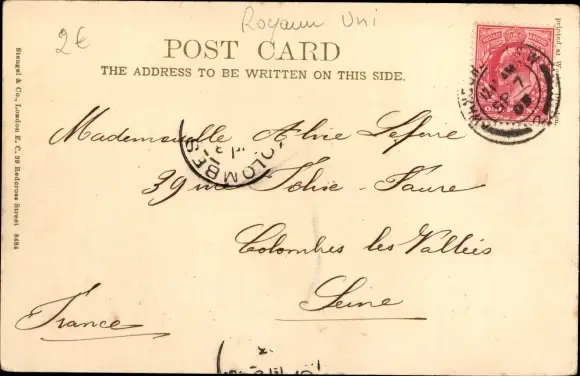 Royaume Uni
2€
POST CARD
THE ADDRESS TO BE WRITTEN ON THIS SIDE.
Mademoiselle Alice Lefèvre
39 rue Félix-Faure
Colombes les Vallées
Seine
France
COLOMBES
Stengel & Co., London E. C. 39 Redcross Street 8484
printed at
SP 7